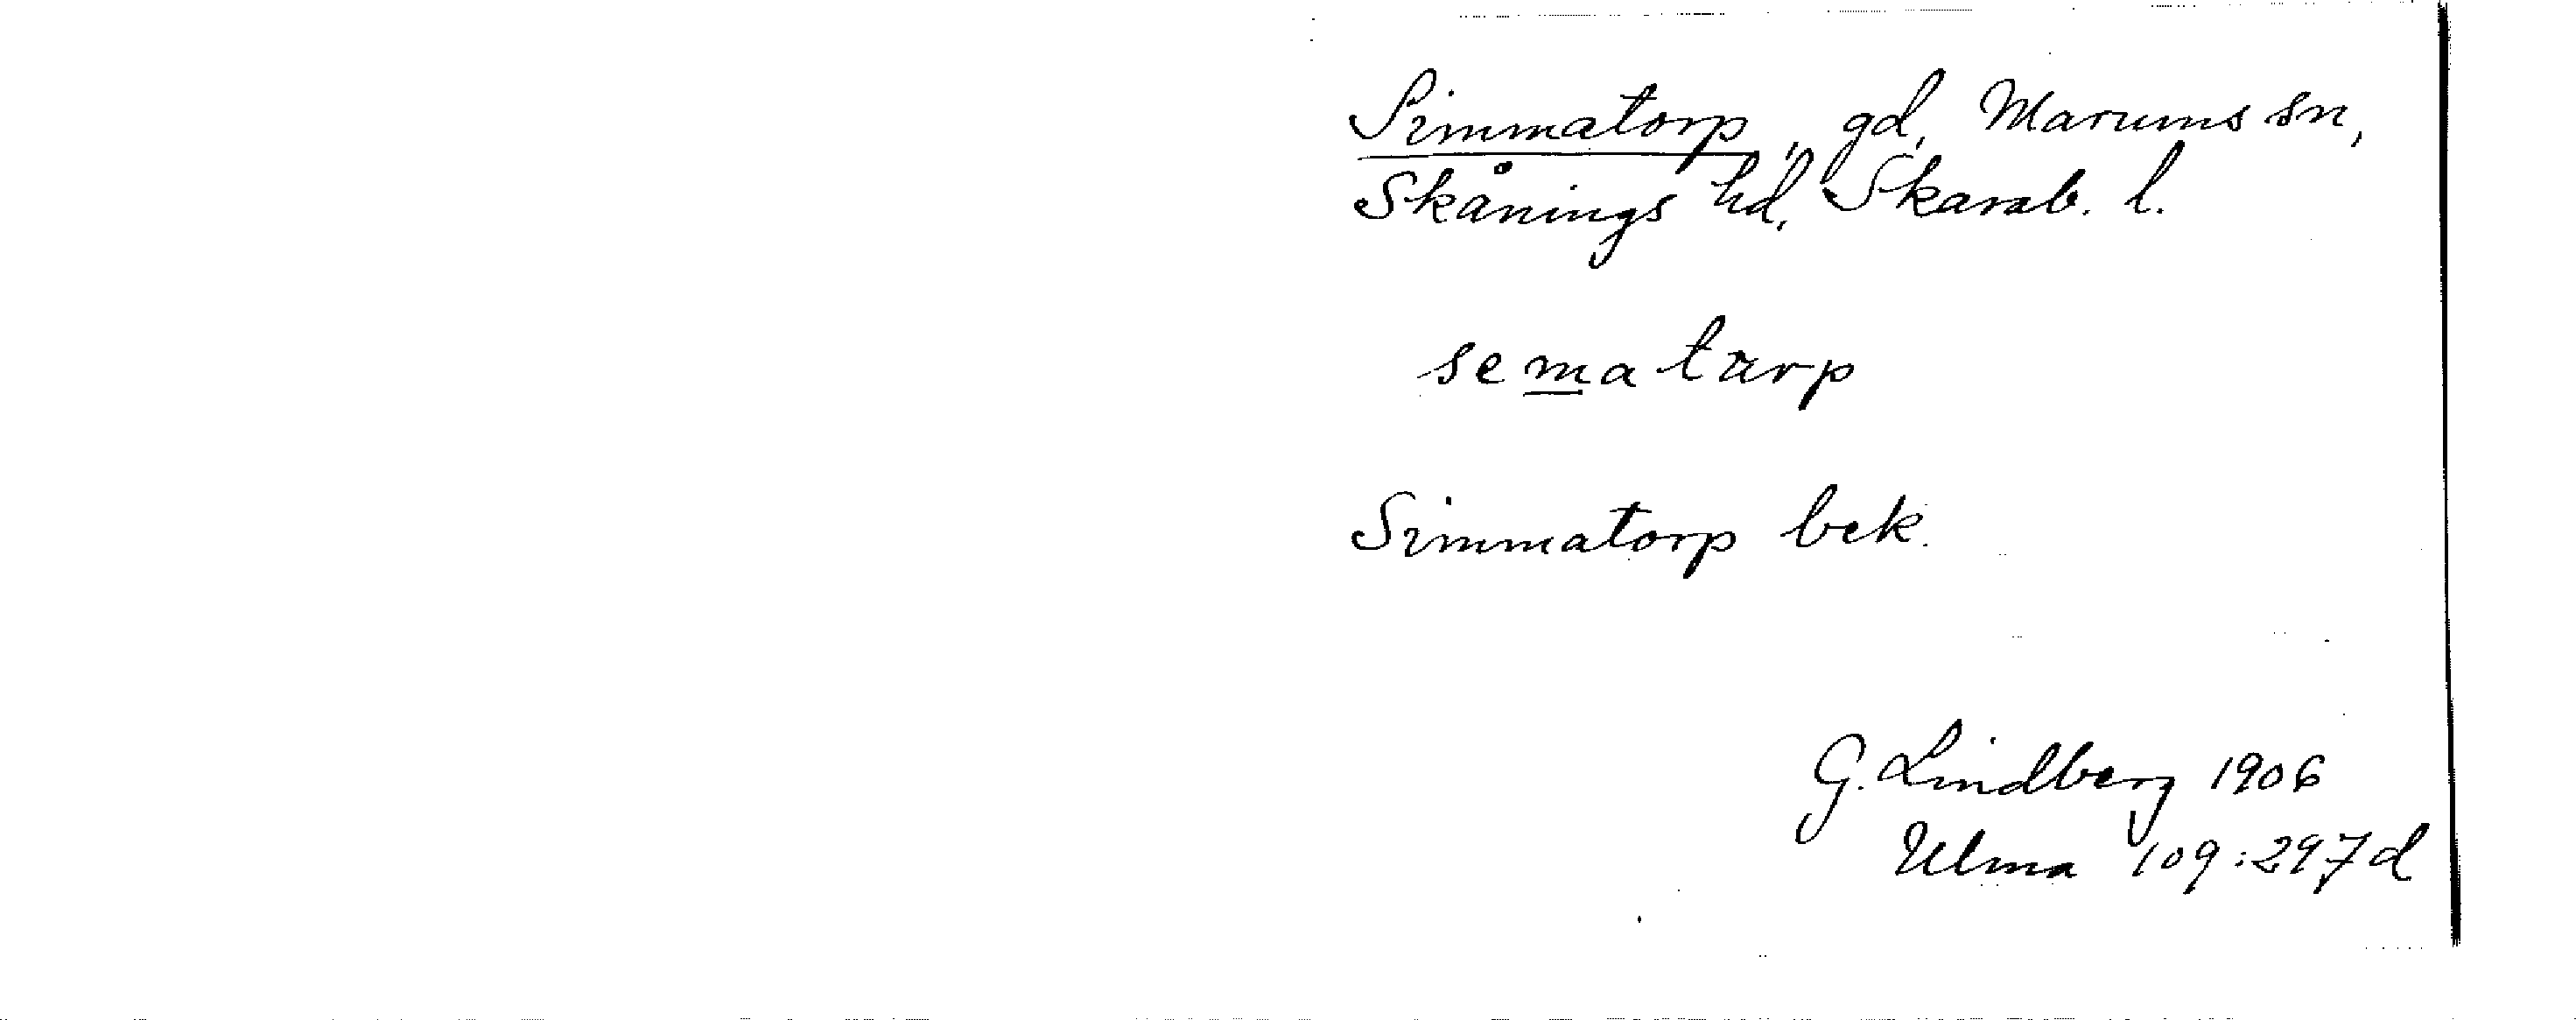 Simmatorp, gd, Marums sn,
Skånings hd, Skarab. l.
sematarp
Simmatorp bek.
G. Lindberg 1906
Ulma 109:297d